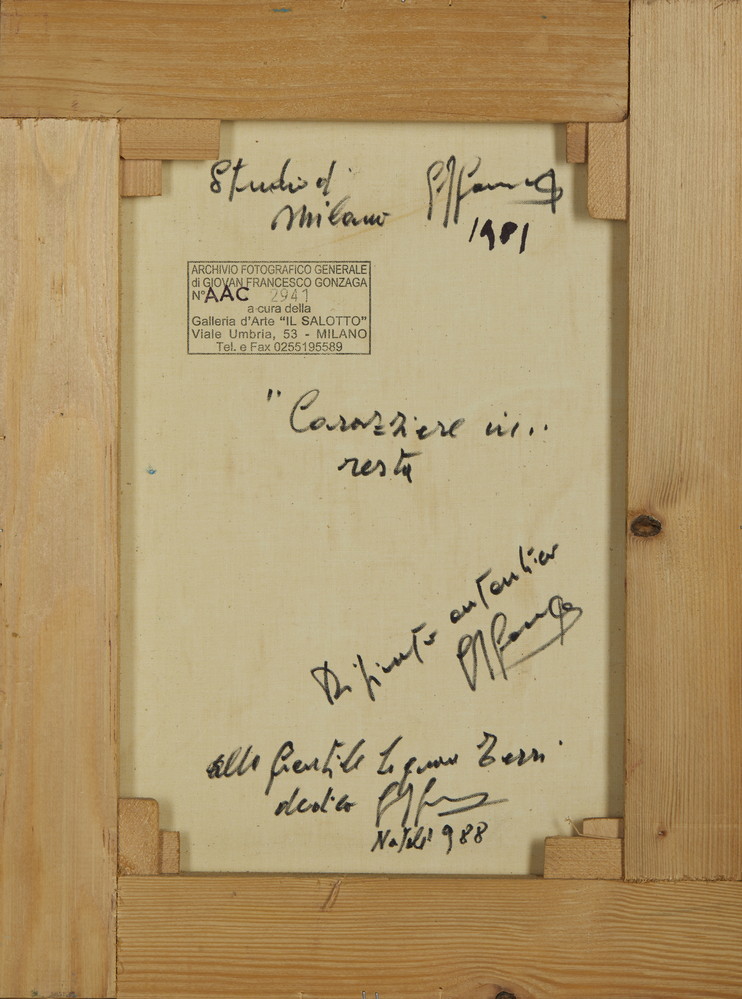 Studio di GFGonzaga
Milano
1981
ARCHIVIO FOTOGRAFICO GENERALE
di GIOVAN FRANCESCO GONZAGA
N° AAC 2941
a cura della
Galleria d'Arte "IL SALOTTO"
Viale Umbria, 53 - MILANO
Tel. e Fax 0255195589
"Corazziere in..
resta
Dipinto autentico
GFGonzaga
alla Gentile Signora
dedico GFGonzaga
Natale 988